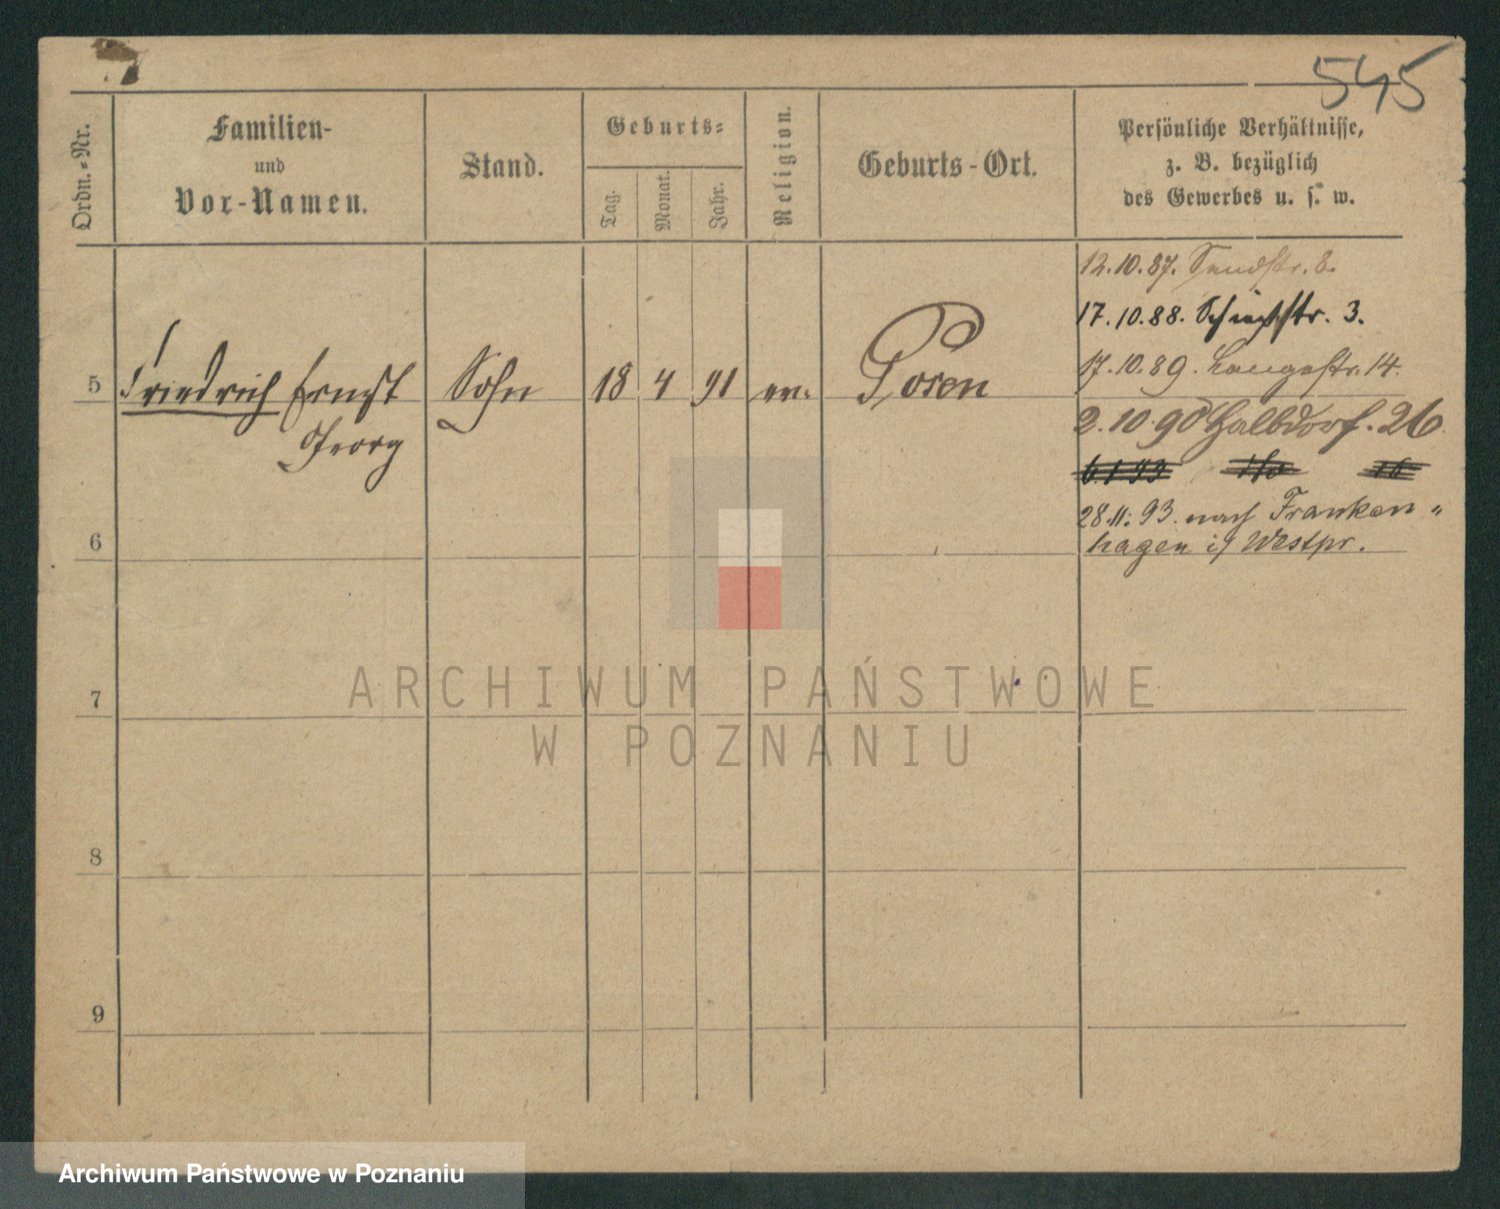 545
Ordn.-Nr.
Familien-
und
Vor-Namen.
Stand.
Geburts-
Tag.
Monat.
Jahr.
Religion.
Geburts-Ort.
Persönliche Verhältnisse,
z. B. bezüglich
des Gewerbes u. s. w.
12.10.87. Sandstr. 8.
17.10.88. Schützstr. 3.
17.10.89. Langestr. 14.
5 Friedrich Ernst Sohn 18 4 91 ev. Posen
Georg
2.10.90 Halbdorf. 26.
6.1.93
28.11.93. nach Franken"
hagen i/ Westpr.
6
7
8
9
ARCHIWUM PAŃSTWOWE
W POZNANIU
Archiwum Państwowe w Poznaniu